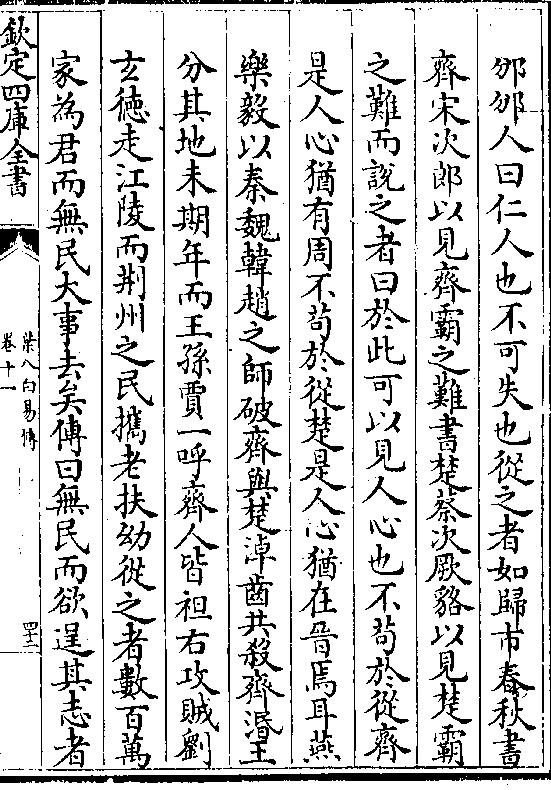 邠邠人曰仁人也不可失也從之者如歸市春秋書
齊宋次郎以見齊霸之難書楚蔡次厥貉以見楚霸
之難而說之者曰於此可以見人心也不苟於從齊
是人心猶有周不苟於從楚是人心猶在晉焉耳燕
樂毅以秦魏韓趙之師破齊與楚淖齒共殺齊湣王
分其地未期年而王孫賈一呼齊人皆袒右攻賊劉
玄德走江陵而荆州之民攜老扶幼從之者數百萬
家為君而無民大事去矣傳曰無民而欲逞其志者
欽定四庫全書
葉八白易傳
卷十一
四十二